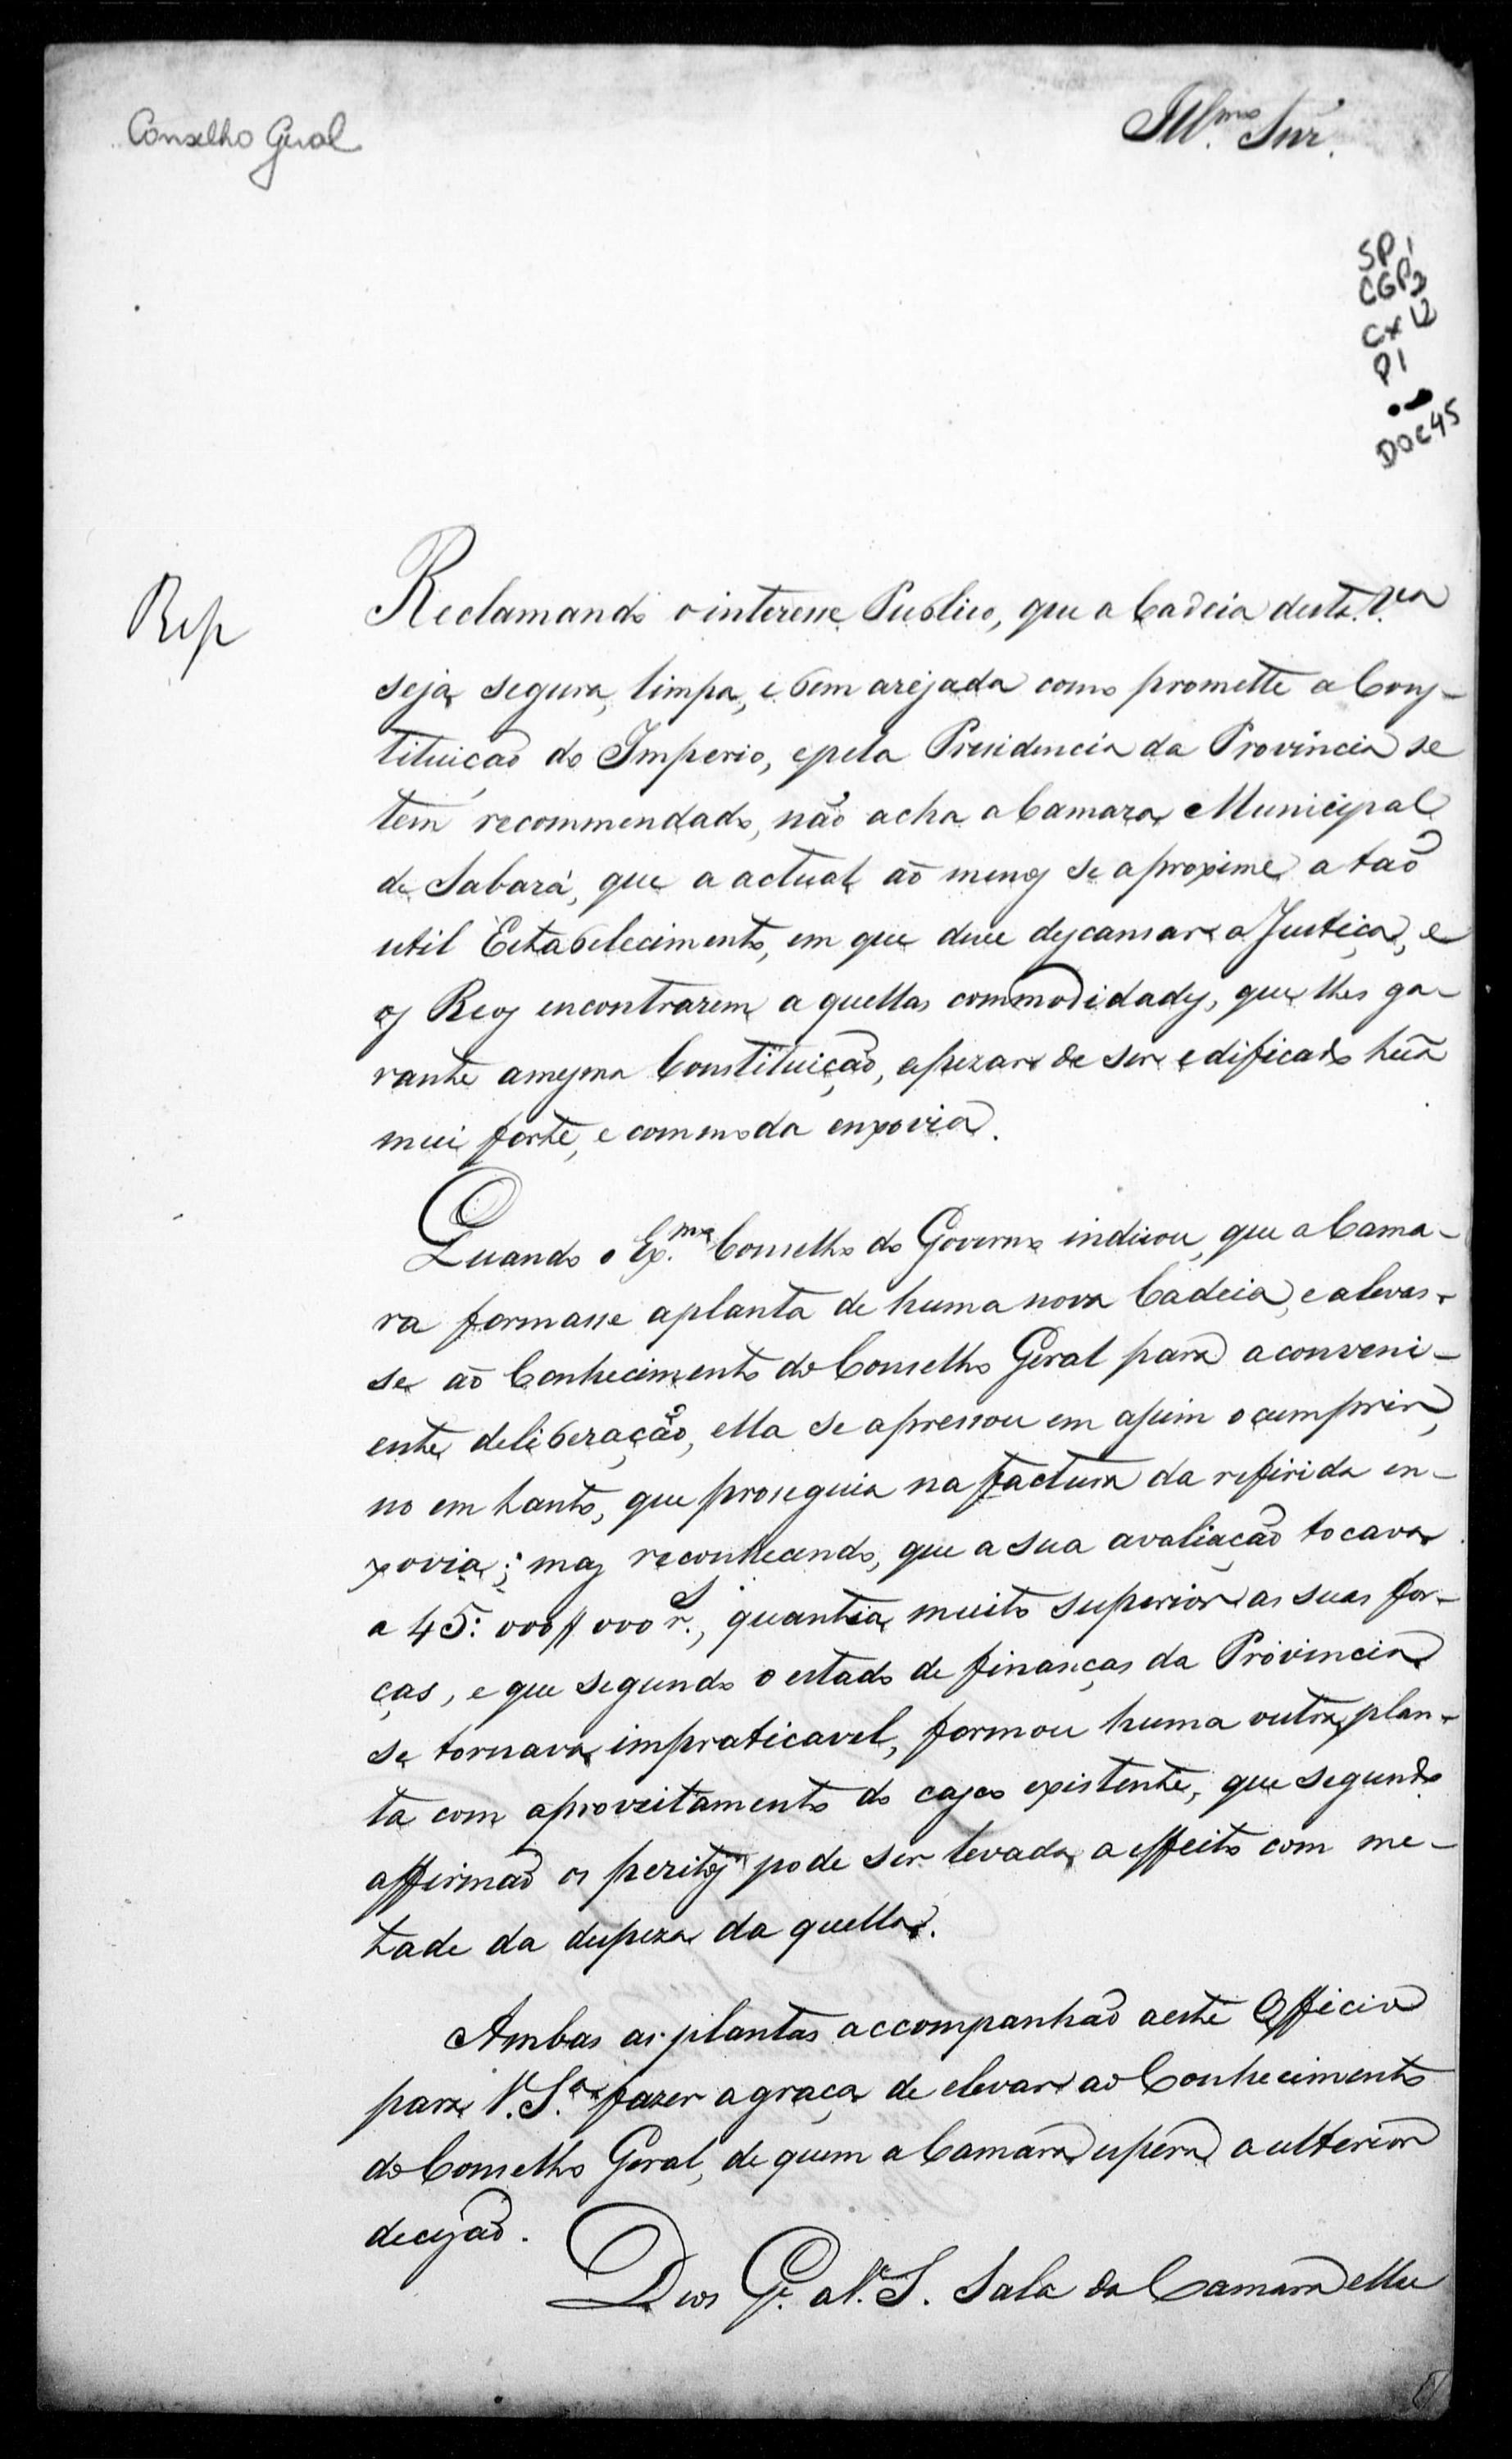 Conselho Geral
Ill.mo Snr.
SP1
CGP3
Cx 12
P1
DOC 45
Rep
Reclamando o interesse Publico, que a Cadeia desta V.ª
seja segura, limpa, e bem arejada como promette a Cons-
tituição do Imperio, e pela Presidencia da Provincia se
tem recommendado, não acha a Camara Municipal
de Sabará, que a actual ao menos se aproxime a taõ
util Estabelecimento, em que deve descansar a Justiça, e
os Reos encontrarem aquellas commodidades, que lhes ga-
rante a mesma Constituição, apezar de ser edificado huã
mui forte, e commoda enxovia.
Quando o Ex.mo Conselho do Governo indicou, que a Cama-
ra formasse a planta de huma nova Cadeia, e a levas-
se aõ Conhecimento do Conselho Geral para a conveni-
ente deliberação, ella se apressou em assim o cumprir,
no em tanto, que proseguia na factura da referida en-
xovia; mas reconhecendo, que a sua avaliação tocava
a 45:000$000 rs., quantia muito superior as suas for-
ças, e que segundo o estado de finanças da Provincia
se tornava impraticavel, formou huma outra plan-
ta com aproveitamento do casco existente, que segundo
affirmaõ os peritos pode ser levada a effeito com me-
tade da despeza da quella.
Ambas as plantas accompanhaõ a este Officio
para V. S.ª fazer a graça de elevar ao Conhecimento
do Conselho Geral, de quem a Camara espera a ulterior
decisaõ.
Deos G.e a V. S. Sala da Camara e Mu